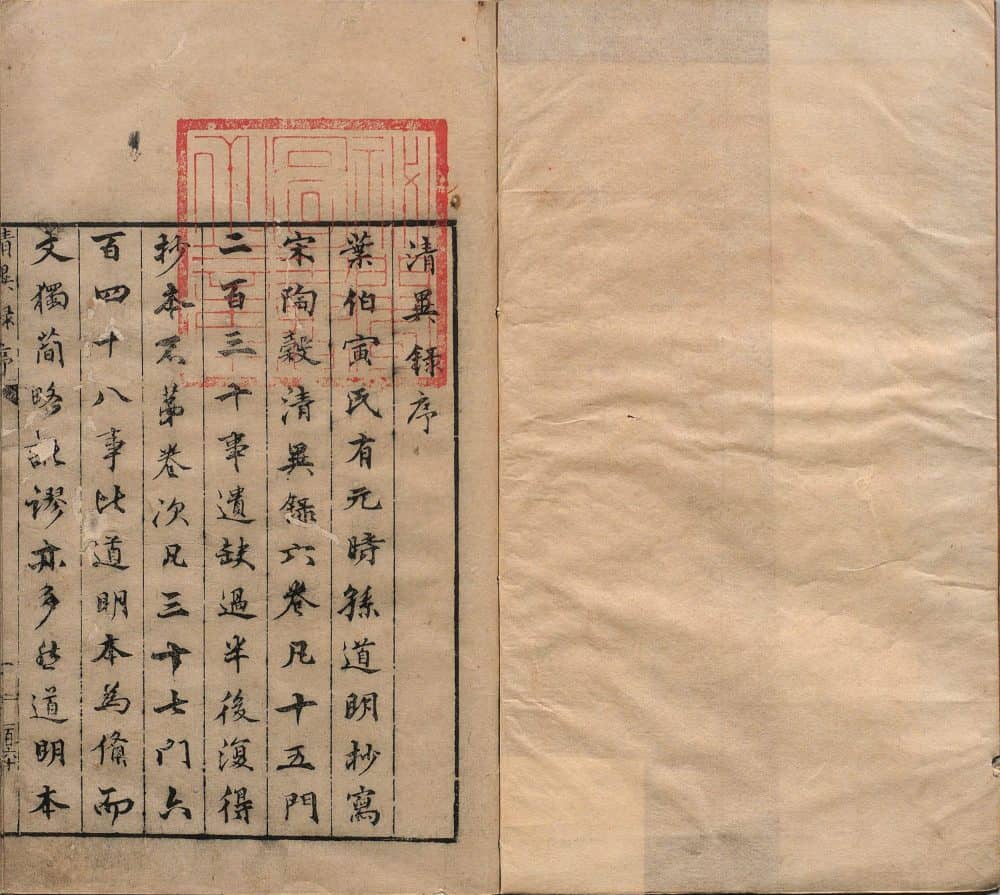 清異錄序
葉伯寅氏有元時孫道明抄寫
宋陶穀清異錄六卷凡十五門
二百三十事遺缺過半後復得
抄本不第卷次凡三十七門六
百四十八事比道明本為備而
文獨簡略訛謬亦多然道明本
清異錄序